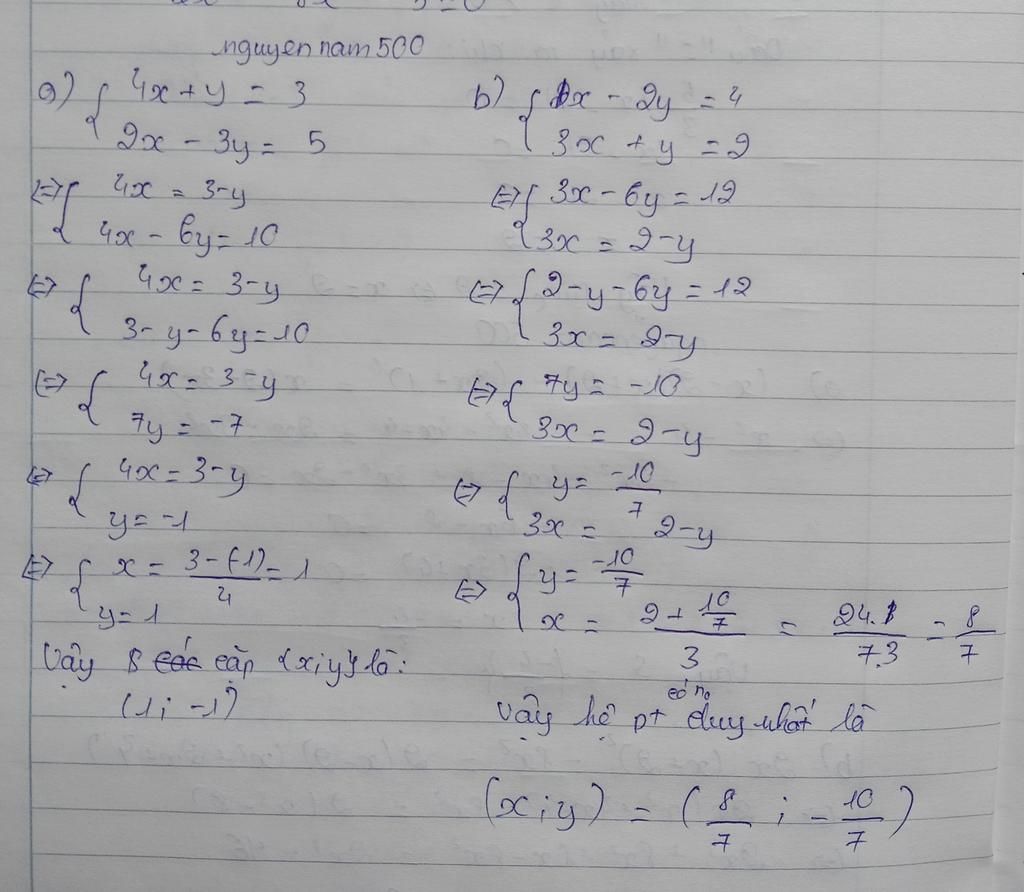 nguyennam500
a) { 4x + y = 3
2x - 3y = 5
<=> { 4x = 3-y
4x - 6y = 10
<=> { 4x = 3-y
3-y-6y=10
<=> { 4x = 3-y
7y = -7
<=> { 4x = 3-y
y = -1
<=> { x = \frac{3-(-1)}{4} = 1
y = 1
Vậy các cặp {x;y} là:
(1; -1)
b) { 1x - 2y = 4
3x + y = 2
<=> { 3x - 6y = 12
3x = 2-y
<=> { 2-y-6y = 12
3x = 2-y
<=> { 7y = -10
3x = 2-y
<=> { y = \frac{-10}{7}
3x = 2-y
<=> { y = \frac{-10}{7}
x = \frac{2 + \frac{10}{7}}{3} = \frac{24.1}{7.3} = \frac{8}{7}
Vậy hệ pt có n0 duy nhất là
(x;y) = (\frac{8}{7} ; -\frac{10}{7})